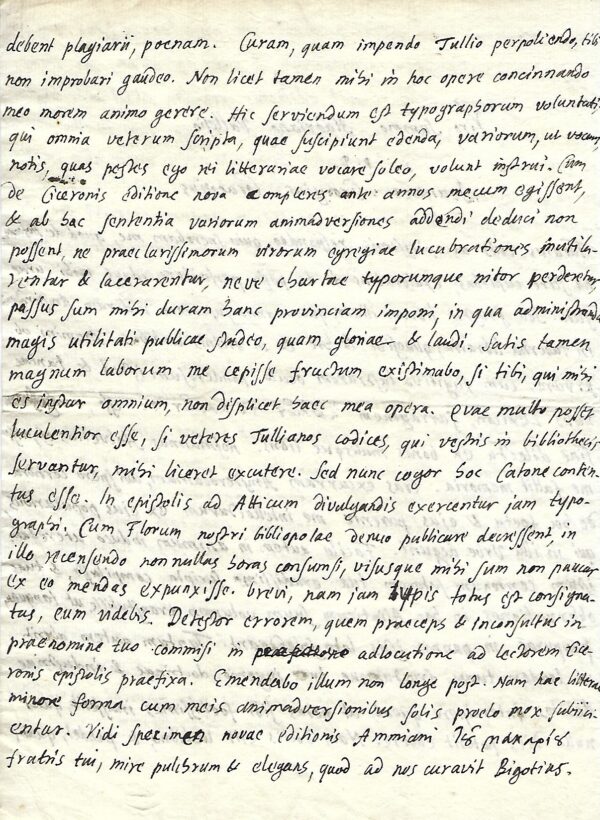 debent plagiarii, poenam. Curam, quam impendo Tullio perpoliendo, tibi
non improbari gaudeo. Non licet tamen mihi in hoc opere concinnando
meo morem animo gerere. Hic serviendum est typographorum voluntati,
qui omnia veterum scripta, quae suscipiunt edenda, variorum, ut vocant,
notis, quas pestes ego rei litterariae vocare soleo, volunt instrui. Cum
de Ciceronis editione nova complures ante annos mecum egissent,
& ab hac sententia variorum animadversiones addendi deduci non
possent, ne praeclarissimorum virorum egregiae lucubrationes mutila-
rentur & lacerarentur, neve chartae typorumque nitor perderetur,
passus sum mihi duram hanc provinciam imponi, in qua administranda
magis utilitati publicae studeo, quam gloriae & laudi. Satis tamen
magnum laborum me cepisse fructum existimabo, si tibi, qui mihi
es instar omnium, non displicet haec mea opera. quae multo posset
luculentior esse, si veteres Tullianos codices, qui vestris in bibliothecis
servantur, mihi liceret excutere. Sed nunc cogor hoc Catone conten-
tus esse. In epistolis ad Atticum divulgandis exercentur jam typo-
graphi. Cum Florum nostri bibliopolae denuo publicare decressent, in
illo recensendo nonnullas horas consumsi, visusque mihi sum non paucas
ex eo mendas expunxisse. brevi, nam jam typis totus est consigna-
tus, eum videbis. Detestor errorem, quem praeceps & inconsultus in
praenomine tuo commisi in adlocutione ad lectorem Cice-
ronis epistolis praefixa. Emendabo illum non longe post. Nam hae litterae
minore forma cum meis animadversionibus solis proelo mox subiici-
entur. Vidi specimen novae editionis Ammiani τȣ μακαρίȣ
fratris tui, mire pulchrum & elegans, quod ad nos curavit Bigotius.